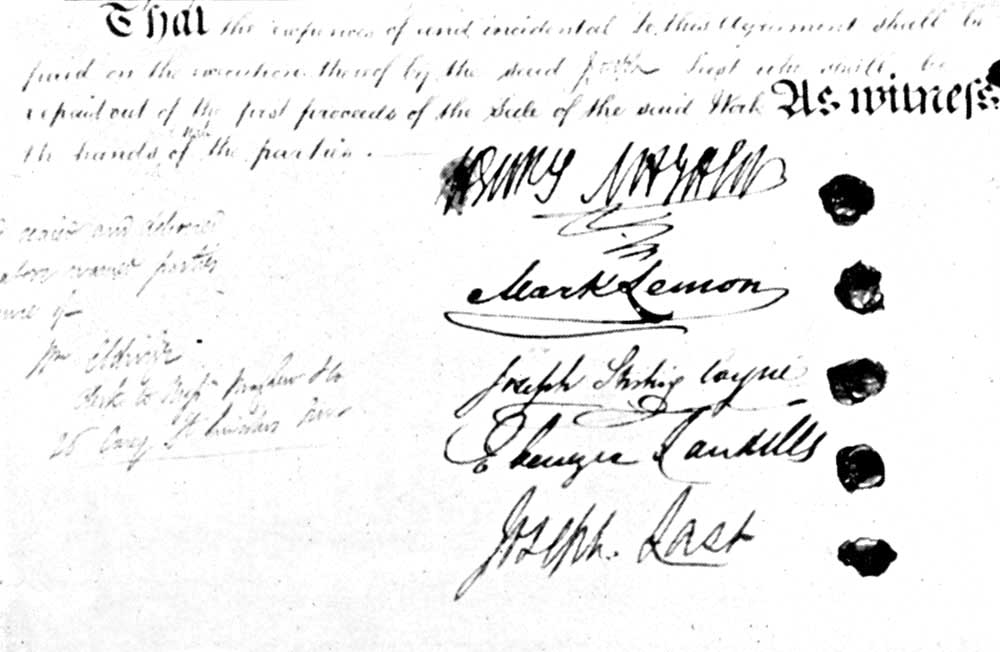 That the expences of and incidental to this Agreement shall be
paid on the execution thereof by the said Joseph Last who shall be
repaid out of the first proceeds of the Sale of the said Work As witness
the hands of the parties.
sealed and delivered
above named parties
of
Henry Mayhew
Mark Lemon
Joseph Stirling Coyne
Ebenezer Landells
Joseph Last
Clerk to Mess Mayhew & Co
26 Carey St Lincolns Inn